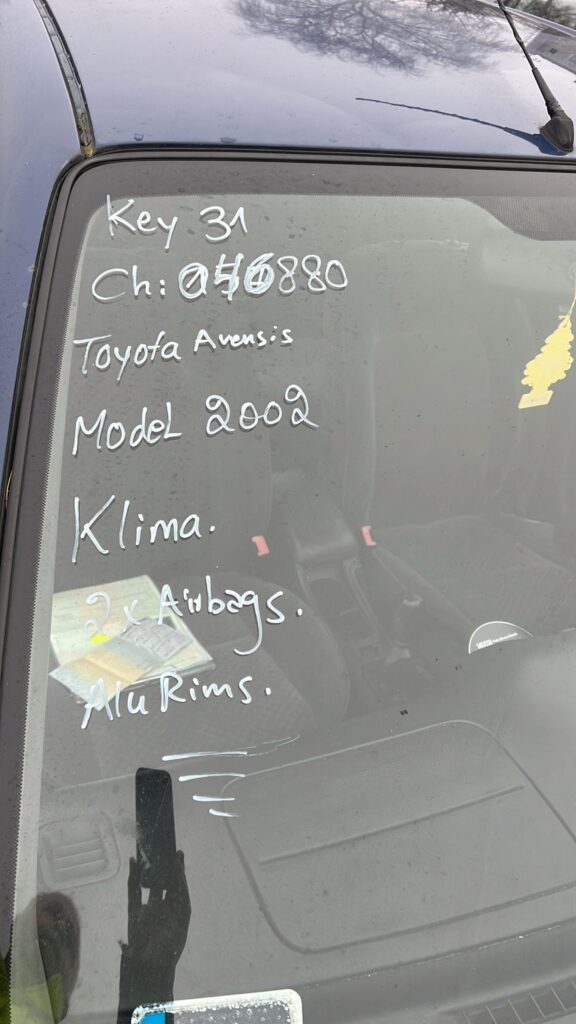 Key 31
Ch: 056880
Toyota Avensis
Model 2002
Klima.
2x Airbags.
Alu Rims.